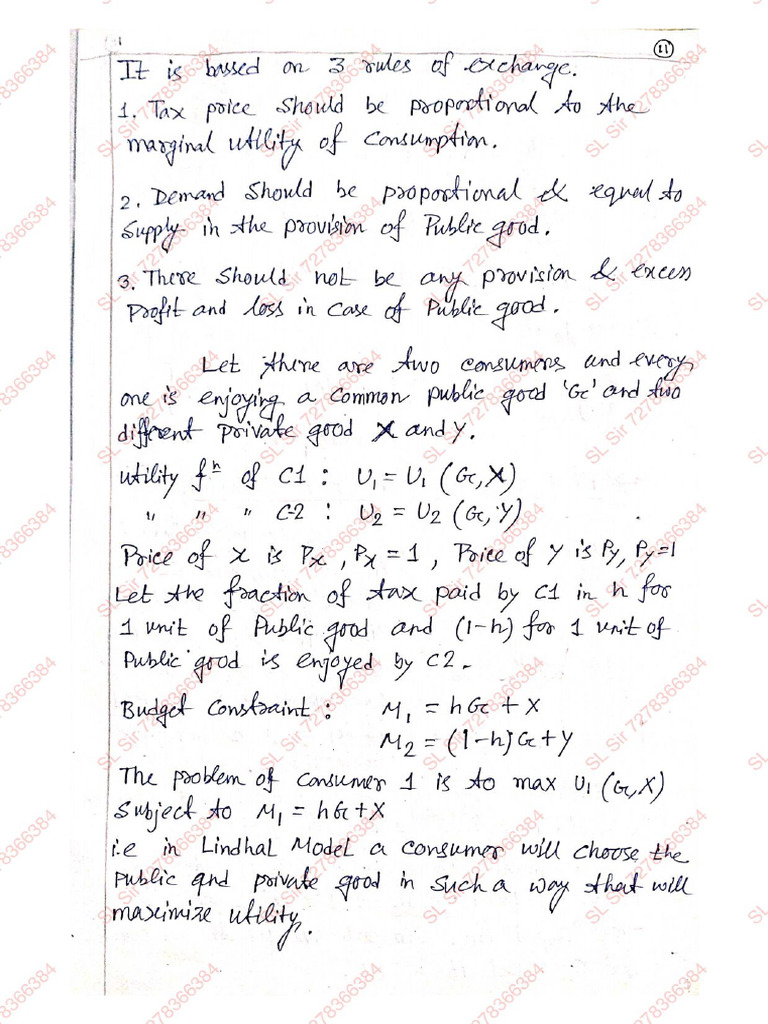 11
It is bassed on 3 rules of exchange.
1. Tax price should be proportional to the
marginal utility of consumption.
2. Demand should be proportional & equal to
supply in the provision of Public good.
3. There should not be any provision & excess
profit and loss in case of Public good.
Let there are two consumers and every
one is enjoying a common public good 'G' and two
different private good X and Y.
utility fⁿ of C1 : U₁ = U₁ (G, X)
" " " C2 : U₂ = U₂ (G, Y)
Price of x is Px , Px = 1 , Price of Y is Py, Py=1
Let the fraction of tax paid by C1 in h for
1 unit of Public good and (1-h) for 1 unit of
Public good is enjoyed by C2.
Budget Constraint : M₁ = hG + X
M₂ = (1-h)G + Y
The problem of consumer 1 is to max U₁ (G,X)
Subject to M₁ = hG+X
i.e in Lindhal Model a consumer will choose the
Public and private good in such a way that will
maximize utility.
SL Sir 7278366384